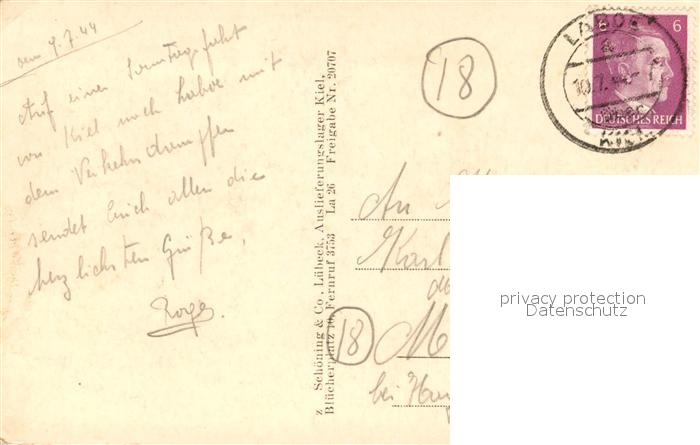 den 9.7.44
Auf einer Sonntagsfahrt
von Kiel nach Laboe mit
dem Verkehrsdampfer
sendet Euch allen die
herzlichsten Grüße,
18
z. Schöning & Co., Lübeck, Auslieferungslager Kiel,
Blücherplatz 10, Fernruf 3753 La 26 Freigabe Nr. 20707
LABOE
10.7.
6 6
DEUTSCHES REICH
An
Karl
18
bei
privacy protection
Datenschutz